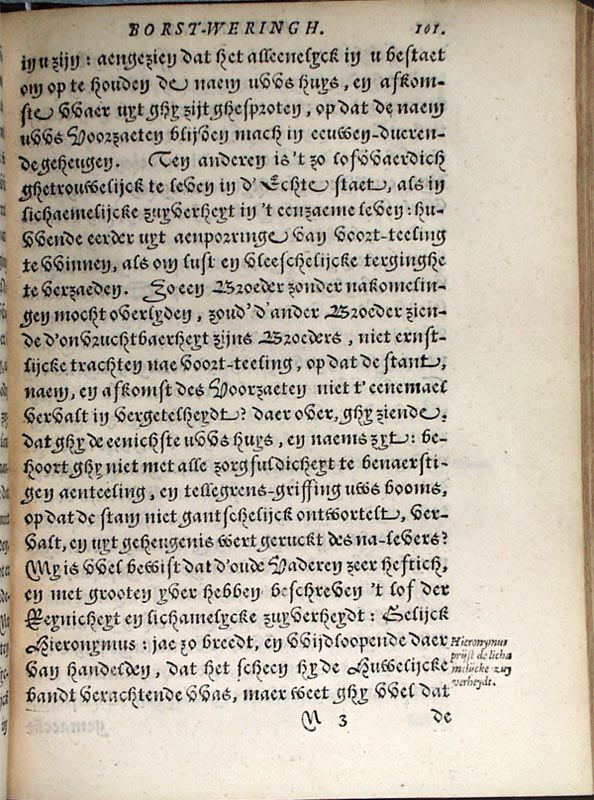 BORST-WERINGH. 101.
in u zijn : aengezien dat het alleenelyck in u bestaet
om op te houden de naem uws huys, en afkom-
ste waer uyt ghy zijt ghesproten, op dat de naem
uws Voorzaeten blijven mach in eeuwen-dueren-
de geheugen. Ten anderen is't zo lofwaerdich
ghetrouwelijck te leven in d'Echte staet, als in
lichaemelijcke zuyverheyt in 't eenzaeme leven : hu-
wende eerder uyt aenporringe van voort-teeling
te winnen, als om lust en vleeschelijcke terginghe
te verzaeden. Zo een Broeder zonder nakomelin-
gen mocht overlyden, zoud' d'ander Broeder zien-
de d'onvruchtbaerheyt zijns Broeders, niet ernst-
lijcke trachten nae voort-teeling, op dat de stant,
naem, en afkomst des Voorzaeten niet t'eenemael
vervalt in vergetelheydt? daer over, ghy ziende,
dat ghy de eenichste uws huys, en naems zyt : be-
hoort ghy niet met alle zorgfuldicheyt te benaersti-
gen aenteeling, en tellegrens-griffing uws booms,
op dat de stam niet gantschelijck ontwortelt, ver-
valt, en uyt geheugenis wert geruckt des na-levers?
My is wel bewist dat d'oude Vaderen zeer heftich,
en met grooten yver hebben beschreven 't lof der
Reynicheyt en lichamelycke zuyverheydt : Gelijck
Hieronymus : jae zo breedt, en wijdloopende daer
van handelden, dat het scheen hy de Huwelijcke
bandt verachtende was, maer weet ghy wel dat
Hieronymus
prijst de licha
melijcke zuy
verheydt.
N 3 de